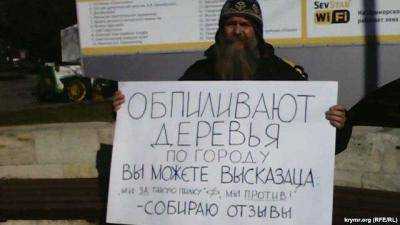 SevStar
WiFi
ОБПИЛИВАЮТ
ДЕРЕВЬЯ
ПО ГОРОДУ
ВЫ МОЖЕТЕ ВЫСКАЗАЦА
МЫ ПРОТИВ!
-СОБИРАЮ ОТЗЫВЫ
krymr.org (RFE/RL)